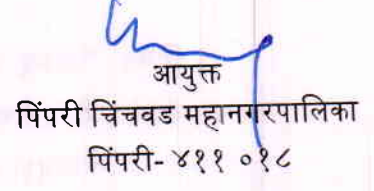 आयुक्त
पिंपरी चिंचवड महानगरपालिका
पिंपरी- ४११ ०१८